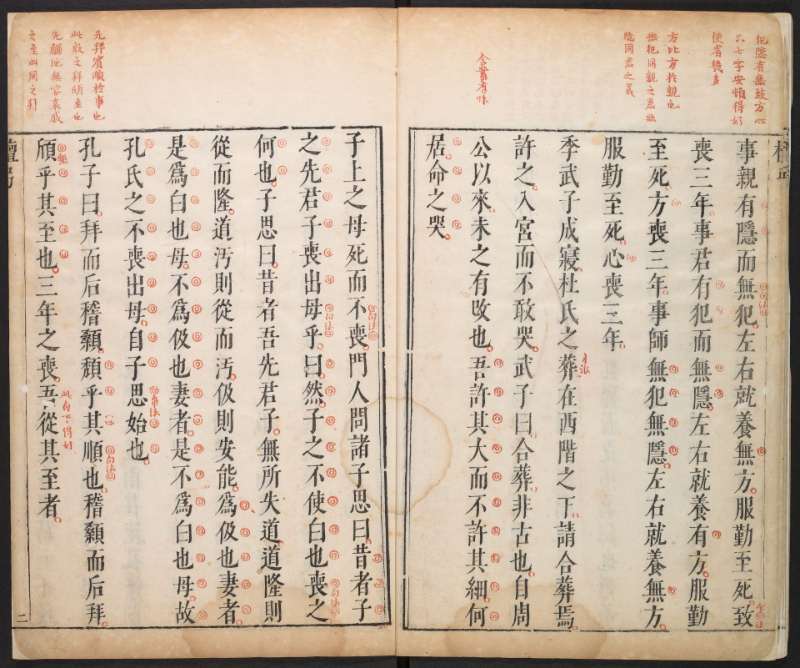 方比方於親也
無犯同親之恩無
隱同君之義
含蓄有味
檀弓
事親有隱而無犯左右就養無方服勤至死致
喪三年事君有犯而無隱左右就養有方服勤
至死方喪三年事師無犯無隱左右就養無方
服勤至死心喪三年
季武子成寢杜氏之葬在西階之下請合葬焉
許之入宮而不敢哭武子曰合葬非古也自周
公以來未之有攺也吾許其大而不許其細何
居命之哭
子上之母死而不喪門人問諸子思曰昔者子
之先君子喪出母乎曰然子之不使白也喪之
何也子思曰昔者吾先君子無所失道道隆則
從而隆道汚則從而汚伋則安能爲伋也妻者
是爲白也母不爲伋也妻者是不爲白也母故
孔氏之不喪出母自子思始也
孔子曰拜而后稽顙頹乎其順也稽顙而后拜
頎乎其至也三年之喪吾從其至者
檀弓
二